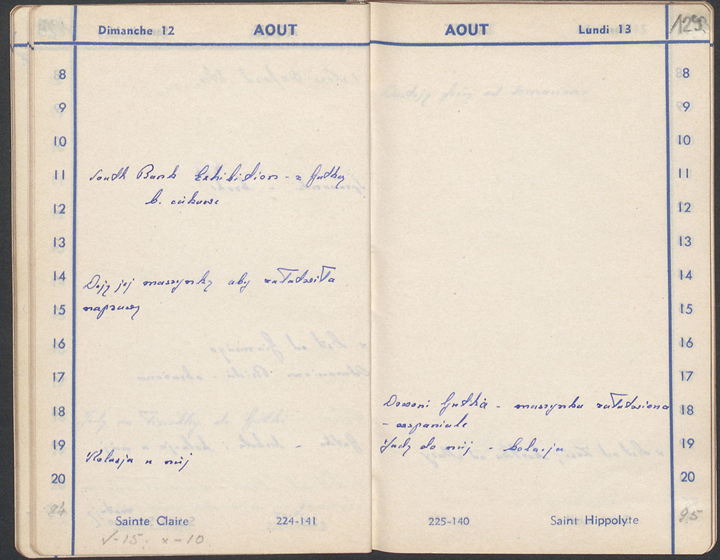 Dimanche 12 AOUT
8
9
10
11 South Bank Exhibition - z Gutką
b. ciekawe
12
13
14 Daję jej maszynkę aby załatwiła
15 naprawę
16
17
18
19 Kolacja u niej
20
Sainte Claire 224-141
v-15. x-10
AOUT Lundi 13 129
8
9
10
11
12
13
14
15
16
17
Dzwoni Gutka - maszynka załatwiona 18
- wspaniale
Jadę do niej - kolacja 19
20
225-140 Saint Hippolyte 95